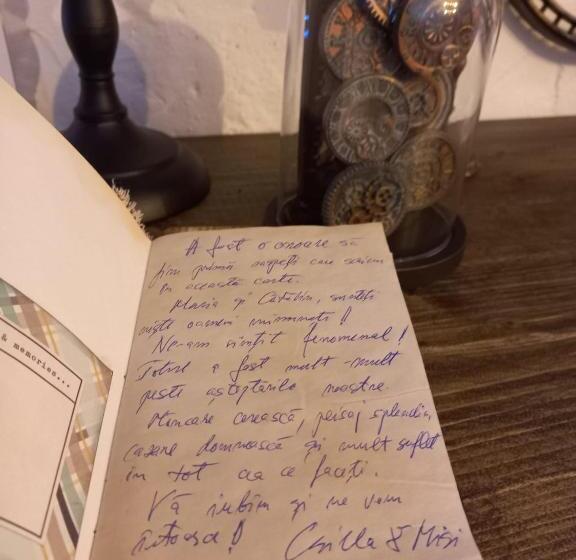 & memories...
A fost o onoare să
fim primii oaspeți care scriem
în această carte.
Maria și Cătălin, sunteți
niște oameni minunați!
Ne-am simțit fenomenal!
Totul a fost mult-mult
peste așteptările noastre.
Mâncare cerească, peisaj splendid,
cazare domnească și mult suflet
în tot ceea ce faceți.
Vă iubim și ne vom
întoarce! Csilla & Misi